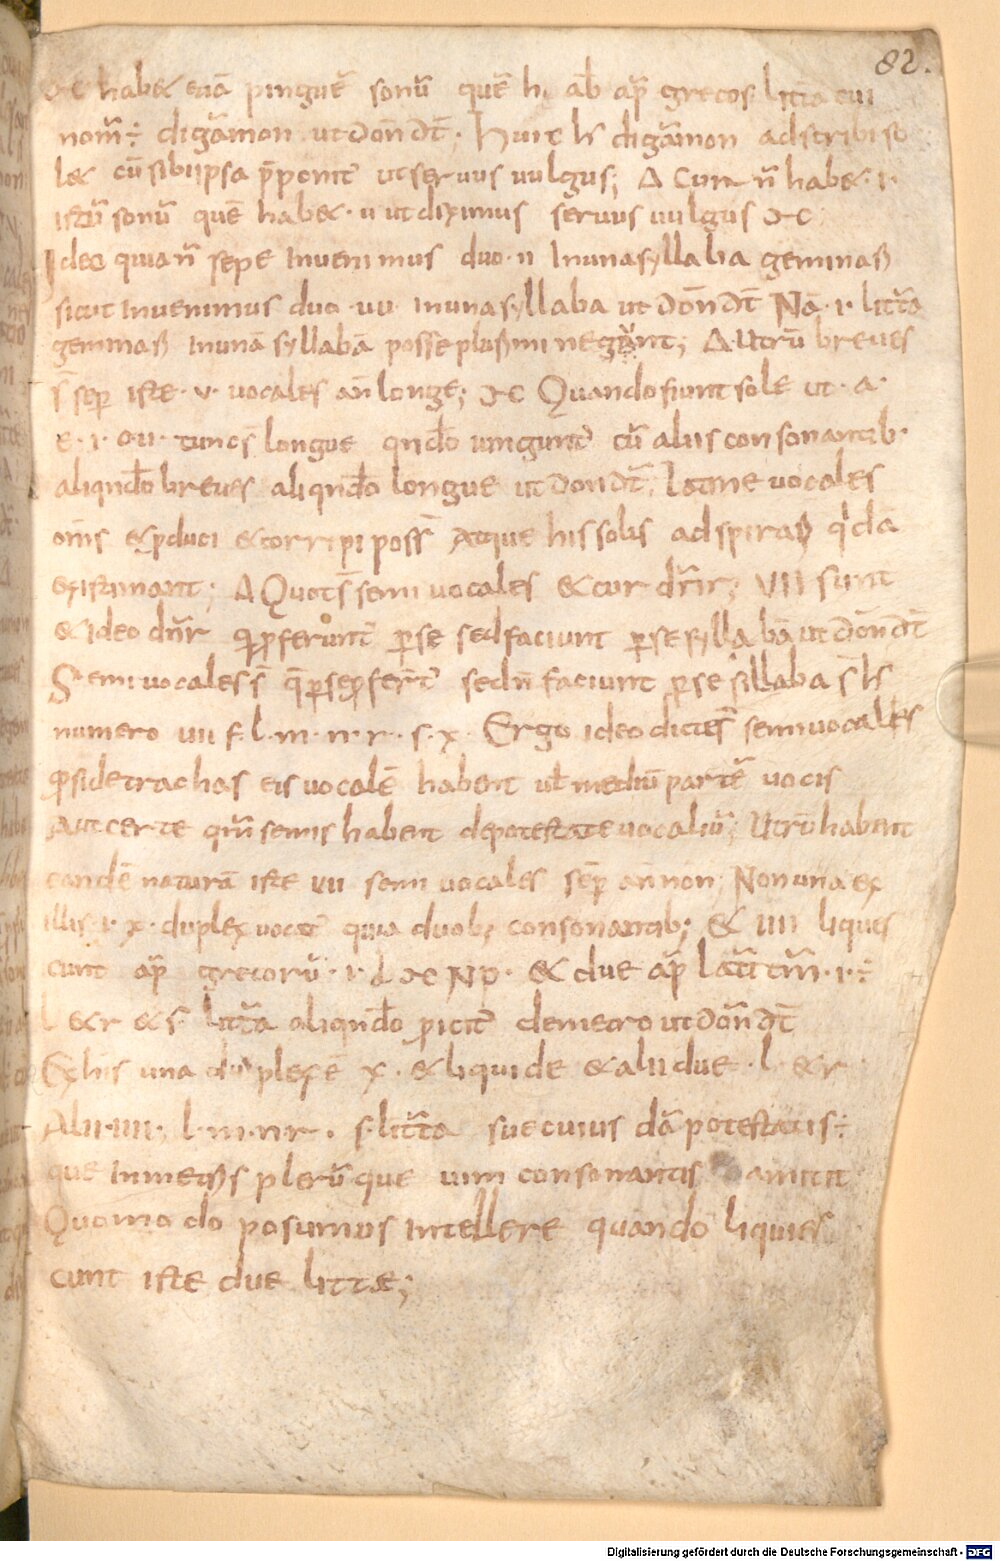 82.
habet etiā pinguē sonū quē h ap̄ grecos litt̄a cui
nom̄ ÷ digāmon ut don̄ dt̄. Huic digāmon adscribi so
let cū sibi ipsa p̄ponit̄ ut seruus uulgus; Δ Cur n̄ habet · i ·
istū sonū quē habet · u ut diximus seruus uulgus
Ideo quia n̄ sepe inuenimus duo · ii in una syllaba geminas
sicut inuenimus duo · uu · in una syllaba ut don̄ dt̄ Nā · i · litt̄a
geminas in unā syllabā posse plus mi negant; Δ Utrū breues
s̄ semp̄ iste · v · uocales an longe; Quando fiunt sole ut · a ·
e · i · o · u · tunc s̄ longue qn̄do iungunt̄ cū aliis consonantib·
aliqn̄do breues aliqn̄do longue ut don dt̄; Latine uocales
om̄s et p̄duci et corripi poss̄ Atque his solis adspiras qͥdā
existimant; Δ Quot s̄ semi uocales et cur dn̄r; VII sunt
et ideo dn̄r per se sed faciunt per se syllabā ut don̄ dt̄
Semi uocales s̄ q̄ per se proferunt̄ sed n̄ faciunt per se sillaba s̄
numero uii f. l. m · n · r · s · x · Ergo ideo dicte s̄ semiuocales
si detrachas eis uocalē habent uł mediū partē uocis
Aut certe semis habent de potestate uocaliū; Utrū habent
eandē naturā iste uii semi uocales semp̄ an non; Non una ex
illis · i · x · duplex uocat̄ quia duob; consonantib; et IIII liques
cunt ap̄ grecorū · i · et due ap̄ · i · ÷
l et r et s litt̄a aliqn̄do metro ut don̄ dt̄
Ex his una duplex ē x · et liquide et alii due · l · et r
Alii · IIII · l · m · n · r · s · litt̄a sue cuius dā potestatis ÷
que in metris plerūque uim consonantis amittit
Quomodo posumus intellere quando liques
cunt iste due litt̄e;
Digitalisierung gefördert durch die Deutsche Forschungsgemeinschaft - DFG